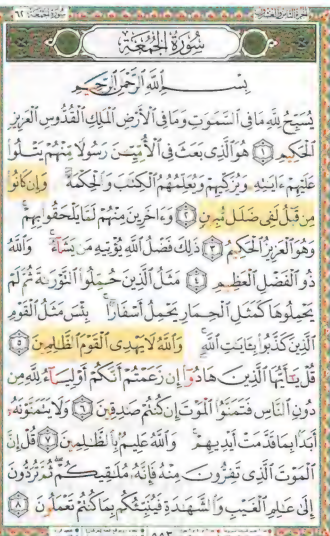 سُورَةُ الْجُمُعَةِ
بِسْمِ اللَّهِ الرَّحْمَٰنِ الرَّحِيمِ
يُسَبِّحُ لِلَّهِ مَا فِي السَّمَٰوَٰتِ وَمَا فِي الْأَرْضِ الْمَلِكِ الْقُدُّوسِ الْعَزِيزِ
الْحَكِيمِ ١ هُوَ الَّذِي بَعَثَ فِي الْأُمِّيِّينَ رَسُولًا مِنْهُمْ يَتْلُوا
عَلَيْهِمْ ءَايَٰتِهِ وَيُزَكِّيهِمْ وَيُعَلِّمُهُمُ الْكِتَٰبَ وَالْحِكْمَةَ وَإِن كَانُوا
مِن قَبْلُ لَفِي ضَلَٰلٍ مُّبِينٍ ٢ وَءَاخَرِينَ مِنْهُمْ لَمَّا يَلْحَقُوا بِهِمْ
وَهُوَ الْعَزِيزُ الْحَكِيمُ ٣ ذَٰلِكَ فَضْلُ اللَّهِ يُؤْتِيهِ مَن يَشَاءُ وَاللَّهُ
ذُو الْفَضْلِ الْعَظِيمِ ٤ مَثَلُ الَّذِينَ حُمِّلُوا التَّوْرَىٰةَ ثُمَّ لَمْ
يَحْمِلُوهَا كَمَثَلِ الْحِمَارِ يَحْمِلُ أَسْفَارًا بِئْسَ مَثَلُ الْقَوْمِ
الَّذِينَ كَذَّبُوا بِـَٔايَٰتِ اللَّهِ وَاللَّهُ لَا يَهْدِي الْقَوْمَ الظَّٰلِمِينَ ٥
قُلْ يَٰأَيُّهَا الَّذِينَ هَادُوا إِن زَعَمْتُمْ أَنَّكُمْ أَوْلِيَاءُ لِلَّهِ مِن
دُونِ النَّاسِ فَتَمَنَّوُا الْمَوْتَ إِن كُنتُمْ صَٰدِقِينَ ٦ وَلَا يَتَمَنَّوْنَهُ
أَبَدًا بِمَا قَدَّمَتْ أَيْدِيهِمْ وَاللَّهُ عَلِيمٌ بِالظَّٰلِمِينَ ٧ قُلْ إِنَّ
الْمَوْتَ الَّذِي تَفِرُّونَ مِنْهُ فَإِنَّهُ مُلَٰقِيكُمْ ثُمَّ تُرَدُّونَ
إِلَىٰ عَٰلِمِ الْغَيْبِ وَالشَّهَٰدَةِ فَيُنَبِّئُكُم بِمَا كُنتُمْ تَعْمَلُونَ ٨